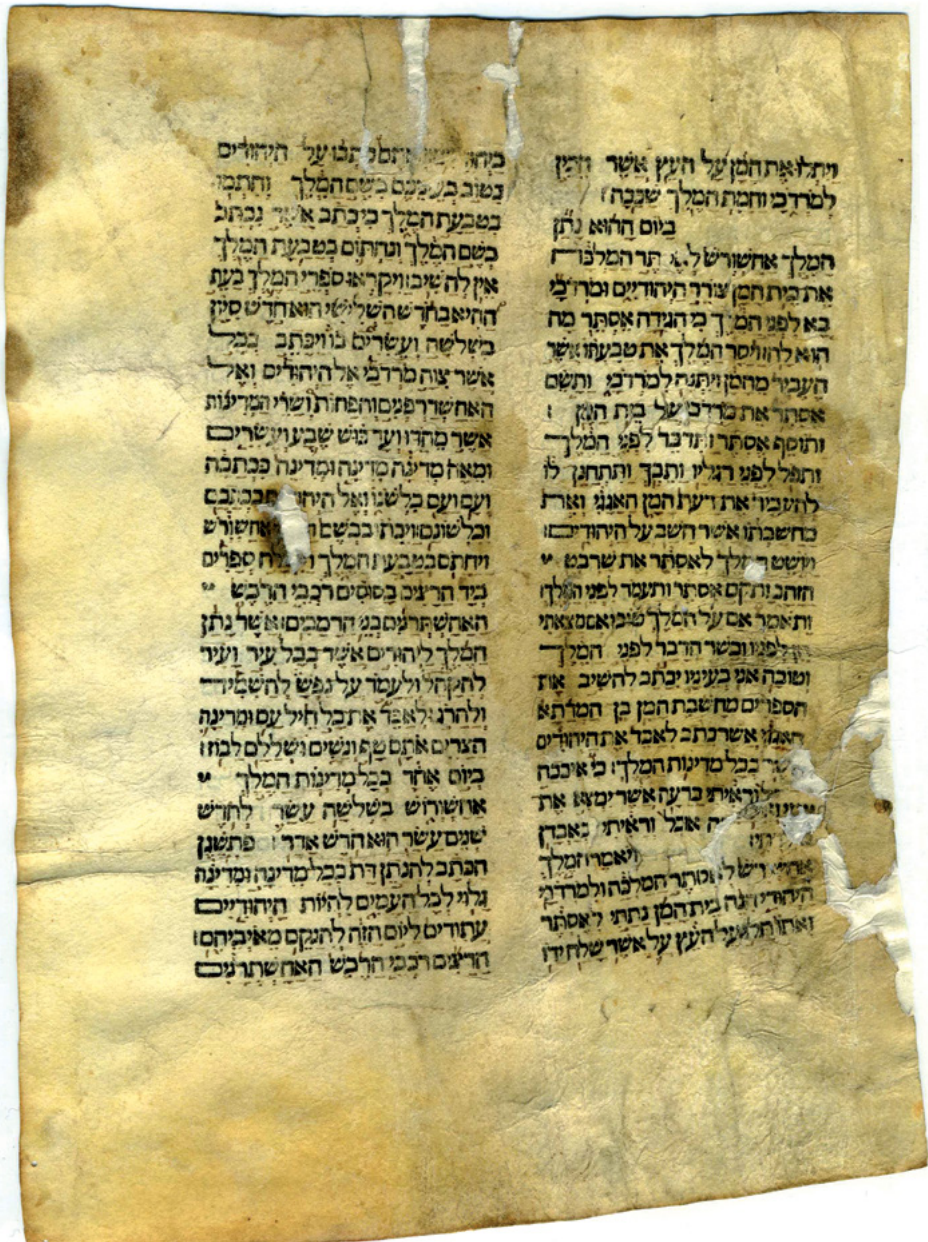 ויתלו את המן על העץ אשר הכין
למרדכי וחמת המלך שככה׃
ביום ההוא נתן
המלך אחשורוש המלכה
את בית המן צורר היהודיים ומרדכי
בא לפני המלך כי הגידה אסתר מה
הוא לה׃ ויסר המלך את טבעתו אשר
העביר מהמן ויתנה למרדכי ותשם
אסתר את מרדכי על בית המן ׃
ותוסף אסתר ותדבר לפני המלך
ותפל לפני רגליו ותבך ותתחנן לו
להעביר את רעת המן האגגי ואת
מחשבתו אשר חשב על היהודיים׃
ויושט המלך לאסתר את שרבט
הזהב ותקם אסתר ותעמד לפני המלך׃
ותאמר אם על המלך טוב ואם מצאתי
חן לפניו וכשר הדבר לפני המלך
וטובה אני בעיניו יכתב להשיב את
הספרים מחשבת המן בן המדתא
האגגי אשר כתב לאבד את היהודיים
אשר בכל מדינות המלך׃ כי איככה
וראיתי ברעה אשר ימצא את
אוכל וראיתי באבדן
ויאמר המלך
אסתר המלכה ולמרדכי
היהודי הנה בית המן נתתי לאסתר
ואתו תלו על העץ על אשר שלח ידו
כתבו על היהודים
כטוב בעיניכם בשם המלך וחתמו
בטבעת המלך כי כתב אשר נכתב
בשם המלך ונחתום בטבעת המלך
אין להשיב׃ ויקראו ספרי המלך בעת
ההיא בחדש השלישי הוא חדש סיון
בשלשה ועשרים בו ויכתב ככל
אשר צוה מרדכי אל היהודים ואל
האחשדרפנים והפחות ושרי המדינות
אשר מהדו ועד כוש שבע ועשרים
ומאה מדינה מדינה ומדינה ככתבה
ועם ועם כלשנו ואל היהודים ככתבם
וכלשונם׃ ויכתב בשם אחשורש
ויחתם בטבעת המלך וישלח ספרים
ביד הרצים בסוסים רכבי הרכש
האחשתרנים בני הרמכים׃ אשר נתן
המלך ליהודים אשר בכל עיר ועיר
להקהל ולעמד על נפשם להשמיד
ולהרג ולאבד את כל חיל עם ומדינה
הצרים אתם טף ונשים ושללם לבוז׃
ביום אחד בכל מדינות המלך
אחשורוש בשלשה עשר לחדש
שנים עשר הוא חדש אדר׃ פתשגן
הכתב להנתן דת בכל מדינה ומדינה
גלוי לכל העמים להיות היהודיים
עתודים ליום הזה להנקם מאיביהם׃
הרצים רכבי הרכש האחשתרנים